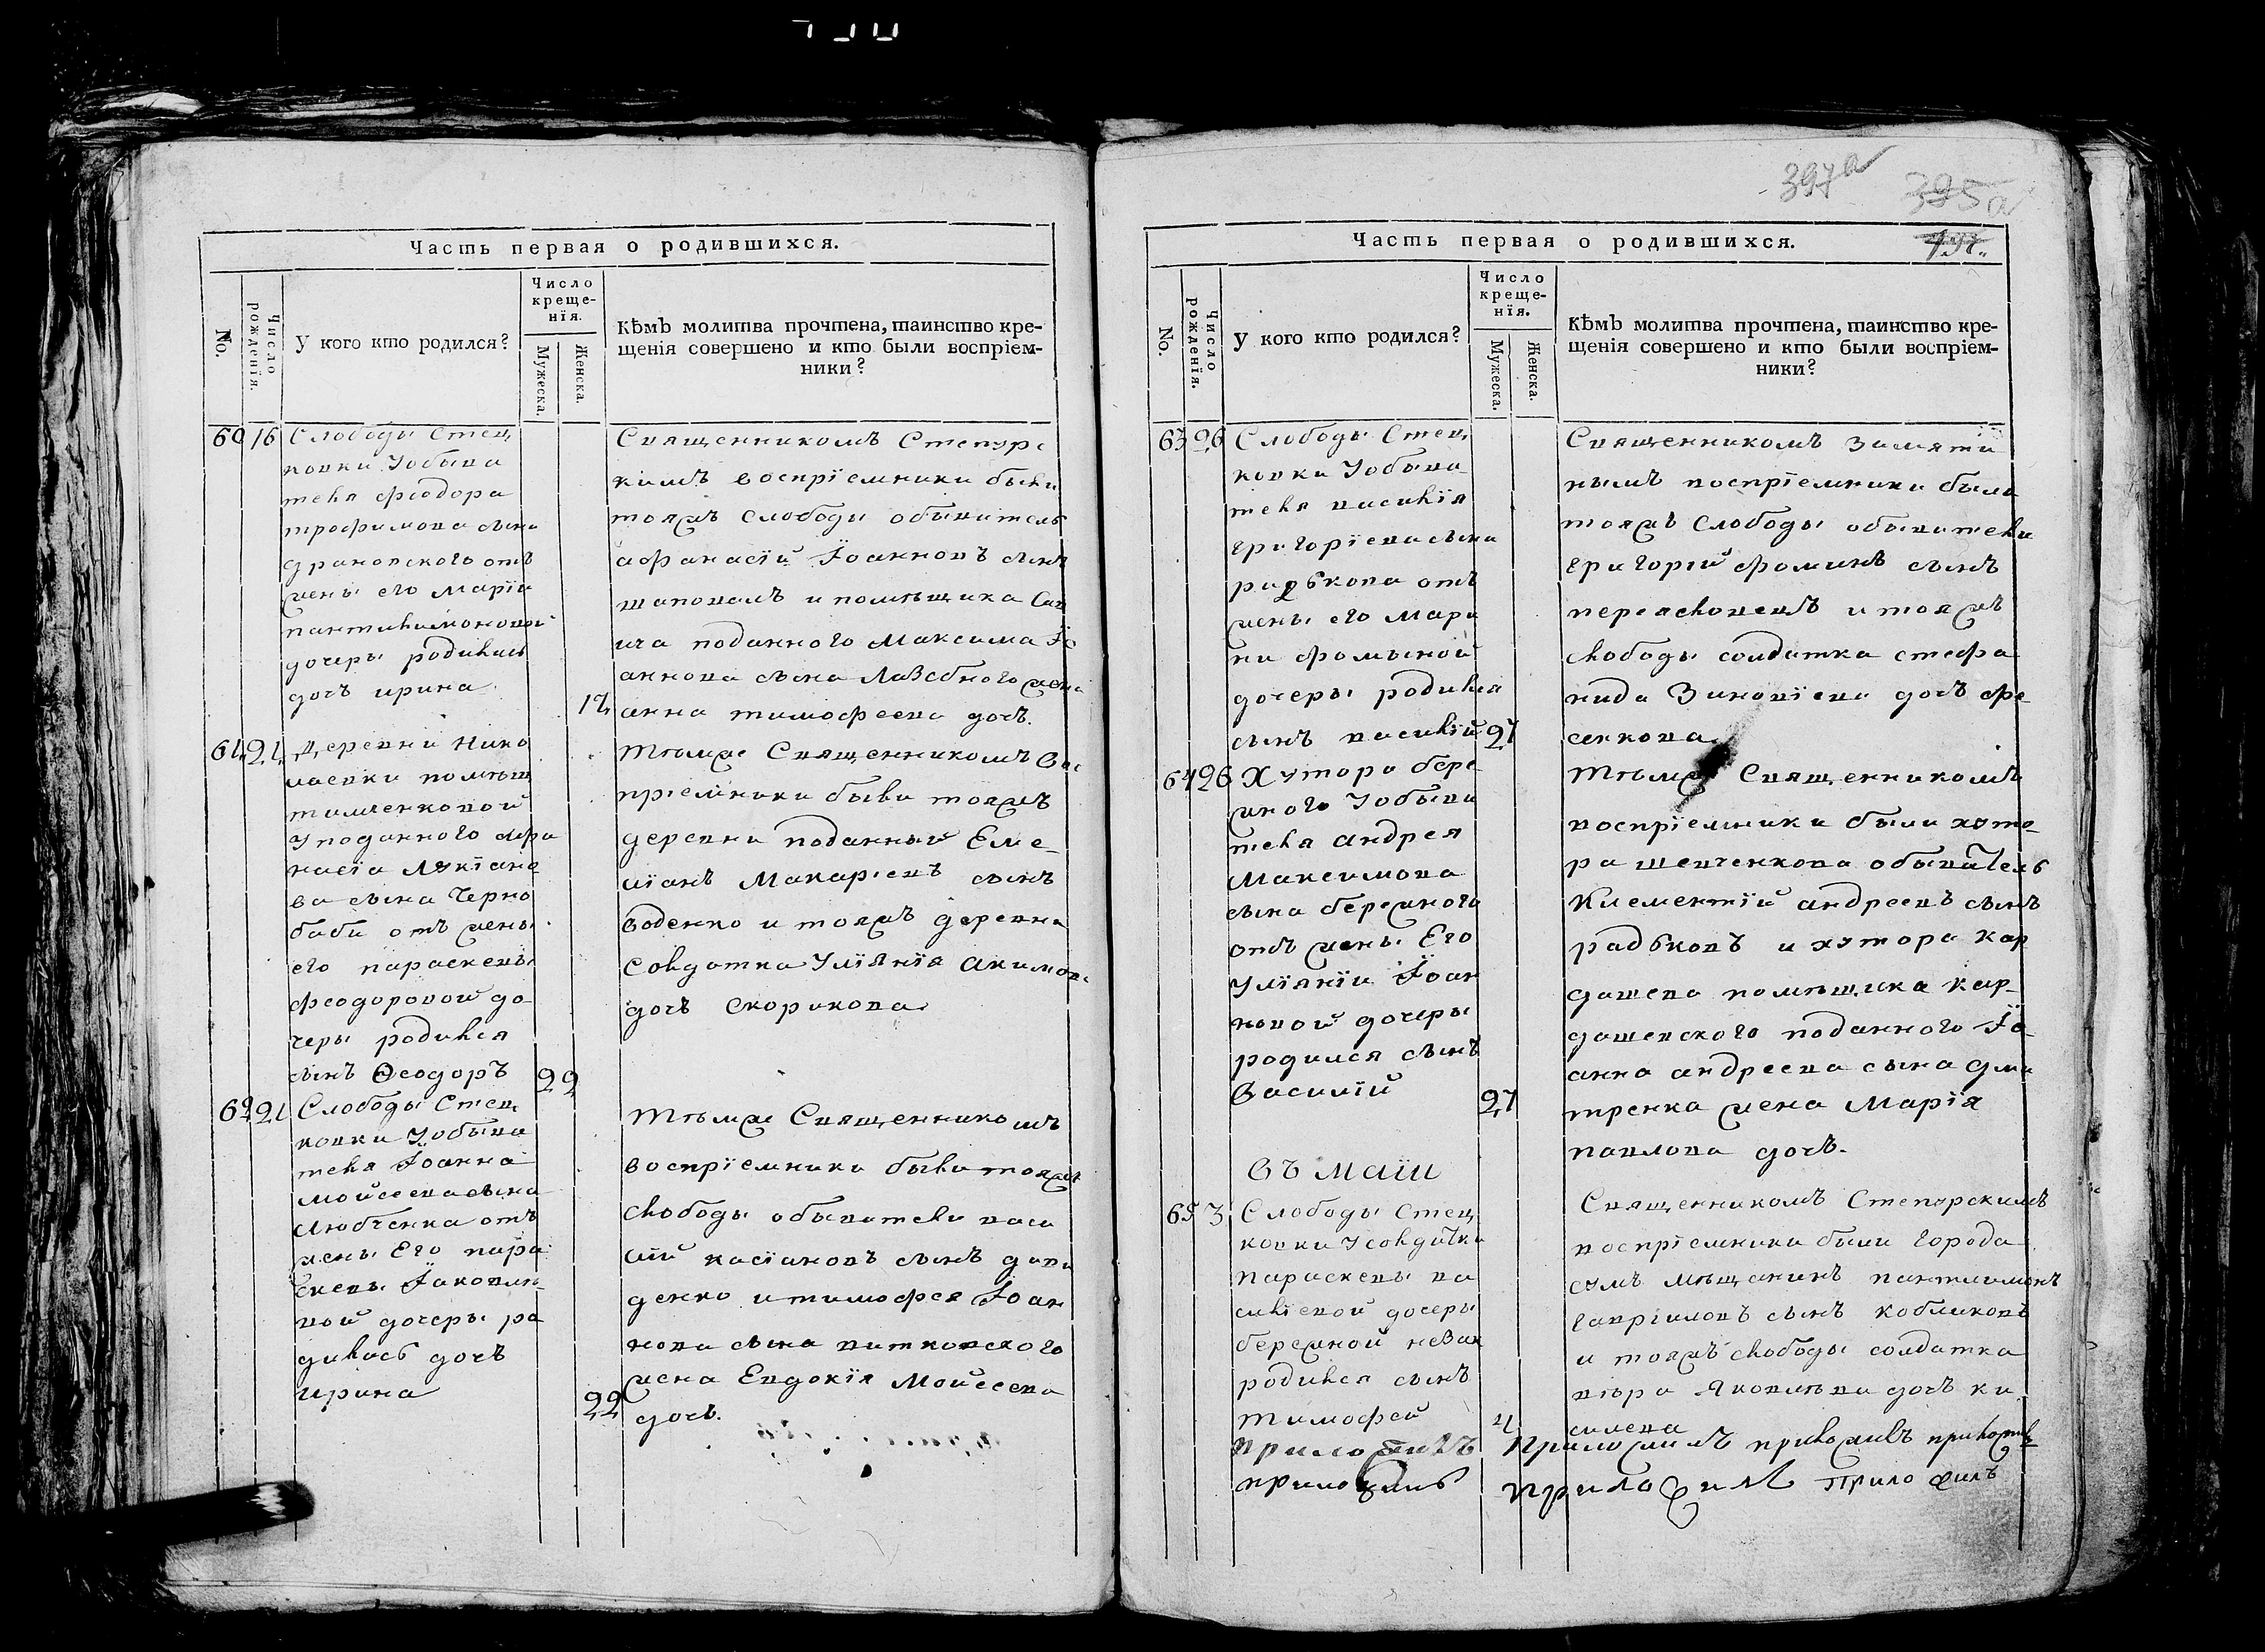 397а
395а
Часть первая о родившихся.
No.
Число рожденія.
У кого кто родился?
Число
креще-
нїя.
Мужеска.
Женска.
Кѣмъ молитва прочтена, таинство кре-
щенїя совершено и кто были воспрїем-
ники?
60 16 Слободы Стец
ковки У обыва
теля феодора
трофимова сына
драновского отъ
жены его марїи
пантилимоновой
дочеры родилась
дочъ ирина
17
Священникомъ Степурс
кимъ воспрїемники были
тояжъ слободы обыватель
афанасїй Їоанновъ сынъ
шаповалъ и помѣщика Сав
ича поданного максима Їо
аннова сына Лазебного жена
анна тимофеева дочъ.
61 21 Деревни Нико
лаевки помѣщ
тимченковой
у поданного афа
насїа Лукїано
ва сына Черно
баби отъ жены
его параскевы
феодоровой до
черы родился
сынъ Ѳеодоръ 22
Тѣмже Священникомъ Вос
прїемники были тояжъ
деревни поданный Еме
лїанъ Макарїевъ сынъ
воденко и тояжъ деревни
Солдатка Улїянїя акимова
дочъ Скорикова
62 21 Слободы Стец
ковки У обыва
теля Їоанна
мойсеева сына
любченка отъ
жены Его пара
скевы Їаковлѣ
вой дочеры ро
дилась дочъ
ирина
22
Тѣмже Священникомъ
воспрїемники были тояжъ
слободы обыватели васи
лїй касїановъ сынъ диви
денко и тимофея Їоан
нова сына витковского
жена Евдокїя Мойсеева
дочъ.
Часть первая о родившихся.
No.
Число рожденїя.
У кого кто родился?
Число
креще-
нїя.
Мужеска.
Женска.
Кѣмъ молитва прочтена, таинство кре-
щенїя совершено и кто были воспрїем-
ники?
63 26 Слободы Стец
ковки У обыва
теля василїя
григорїева сына
радькова отъ
жены его мари
ни фоминой
дочеры родился
сынъ василїй 27
Священникомъ Замяти
нымъ воспрїемники были
тояжъ слободы обыватели
григорїй фоминъ сынъ
переясловецъ и тояжъ
слободы солдатка стефа
нида Зиновїева дочъ фе
сенкова
64 26 Хутора бере
жного У обыва
теля андрея
Максимова
сына бережного
отъ жены Его
Улїянїи Їоан
новой дочеры
родился сынъ
Василїй 27
Тѣмже Священникомъ
воспрїемники были хуто
ра шевченкова обыватель
Климентїй андреевъ сынъ
радьковъ и хутора кар
дашева помѣщика кар
дашевского поданного Їо
анна андреева сына дми
тренка жена Марїя
павлова дочъ.
Въ маїи
65 3 Слободы Стец
ковки У солдатки
параскевы ва
силїевой дочеры
бережной незак
родился сынъ
Тимофей 4
Священникомъ Степурскимъ
воспрїемники были города
сумъ мѣщанинъ пантилимонъ
гаврїиловъ сынъ кобликовъ
и тояжъ слободы солдатка
вѣра Яковлѣва дочъ ки
силева
приложилъ приложилъ приложилъ
приложилъ приложилъ приложилъ